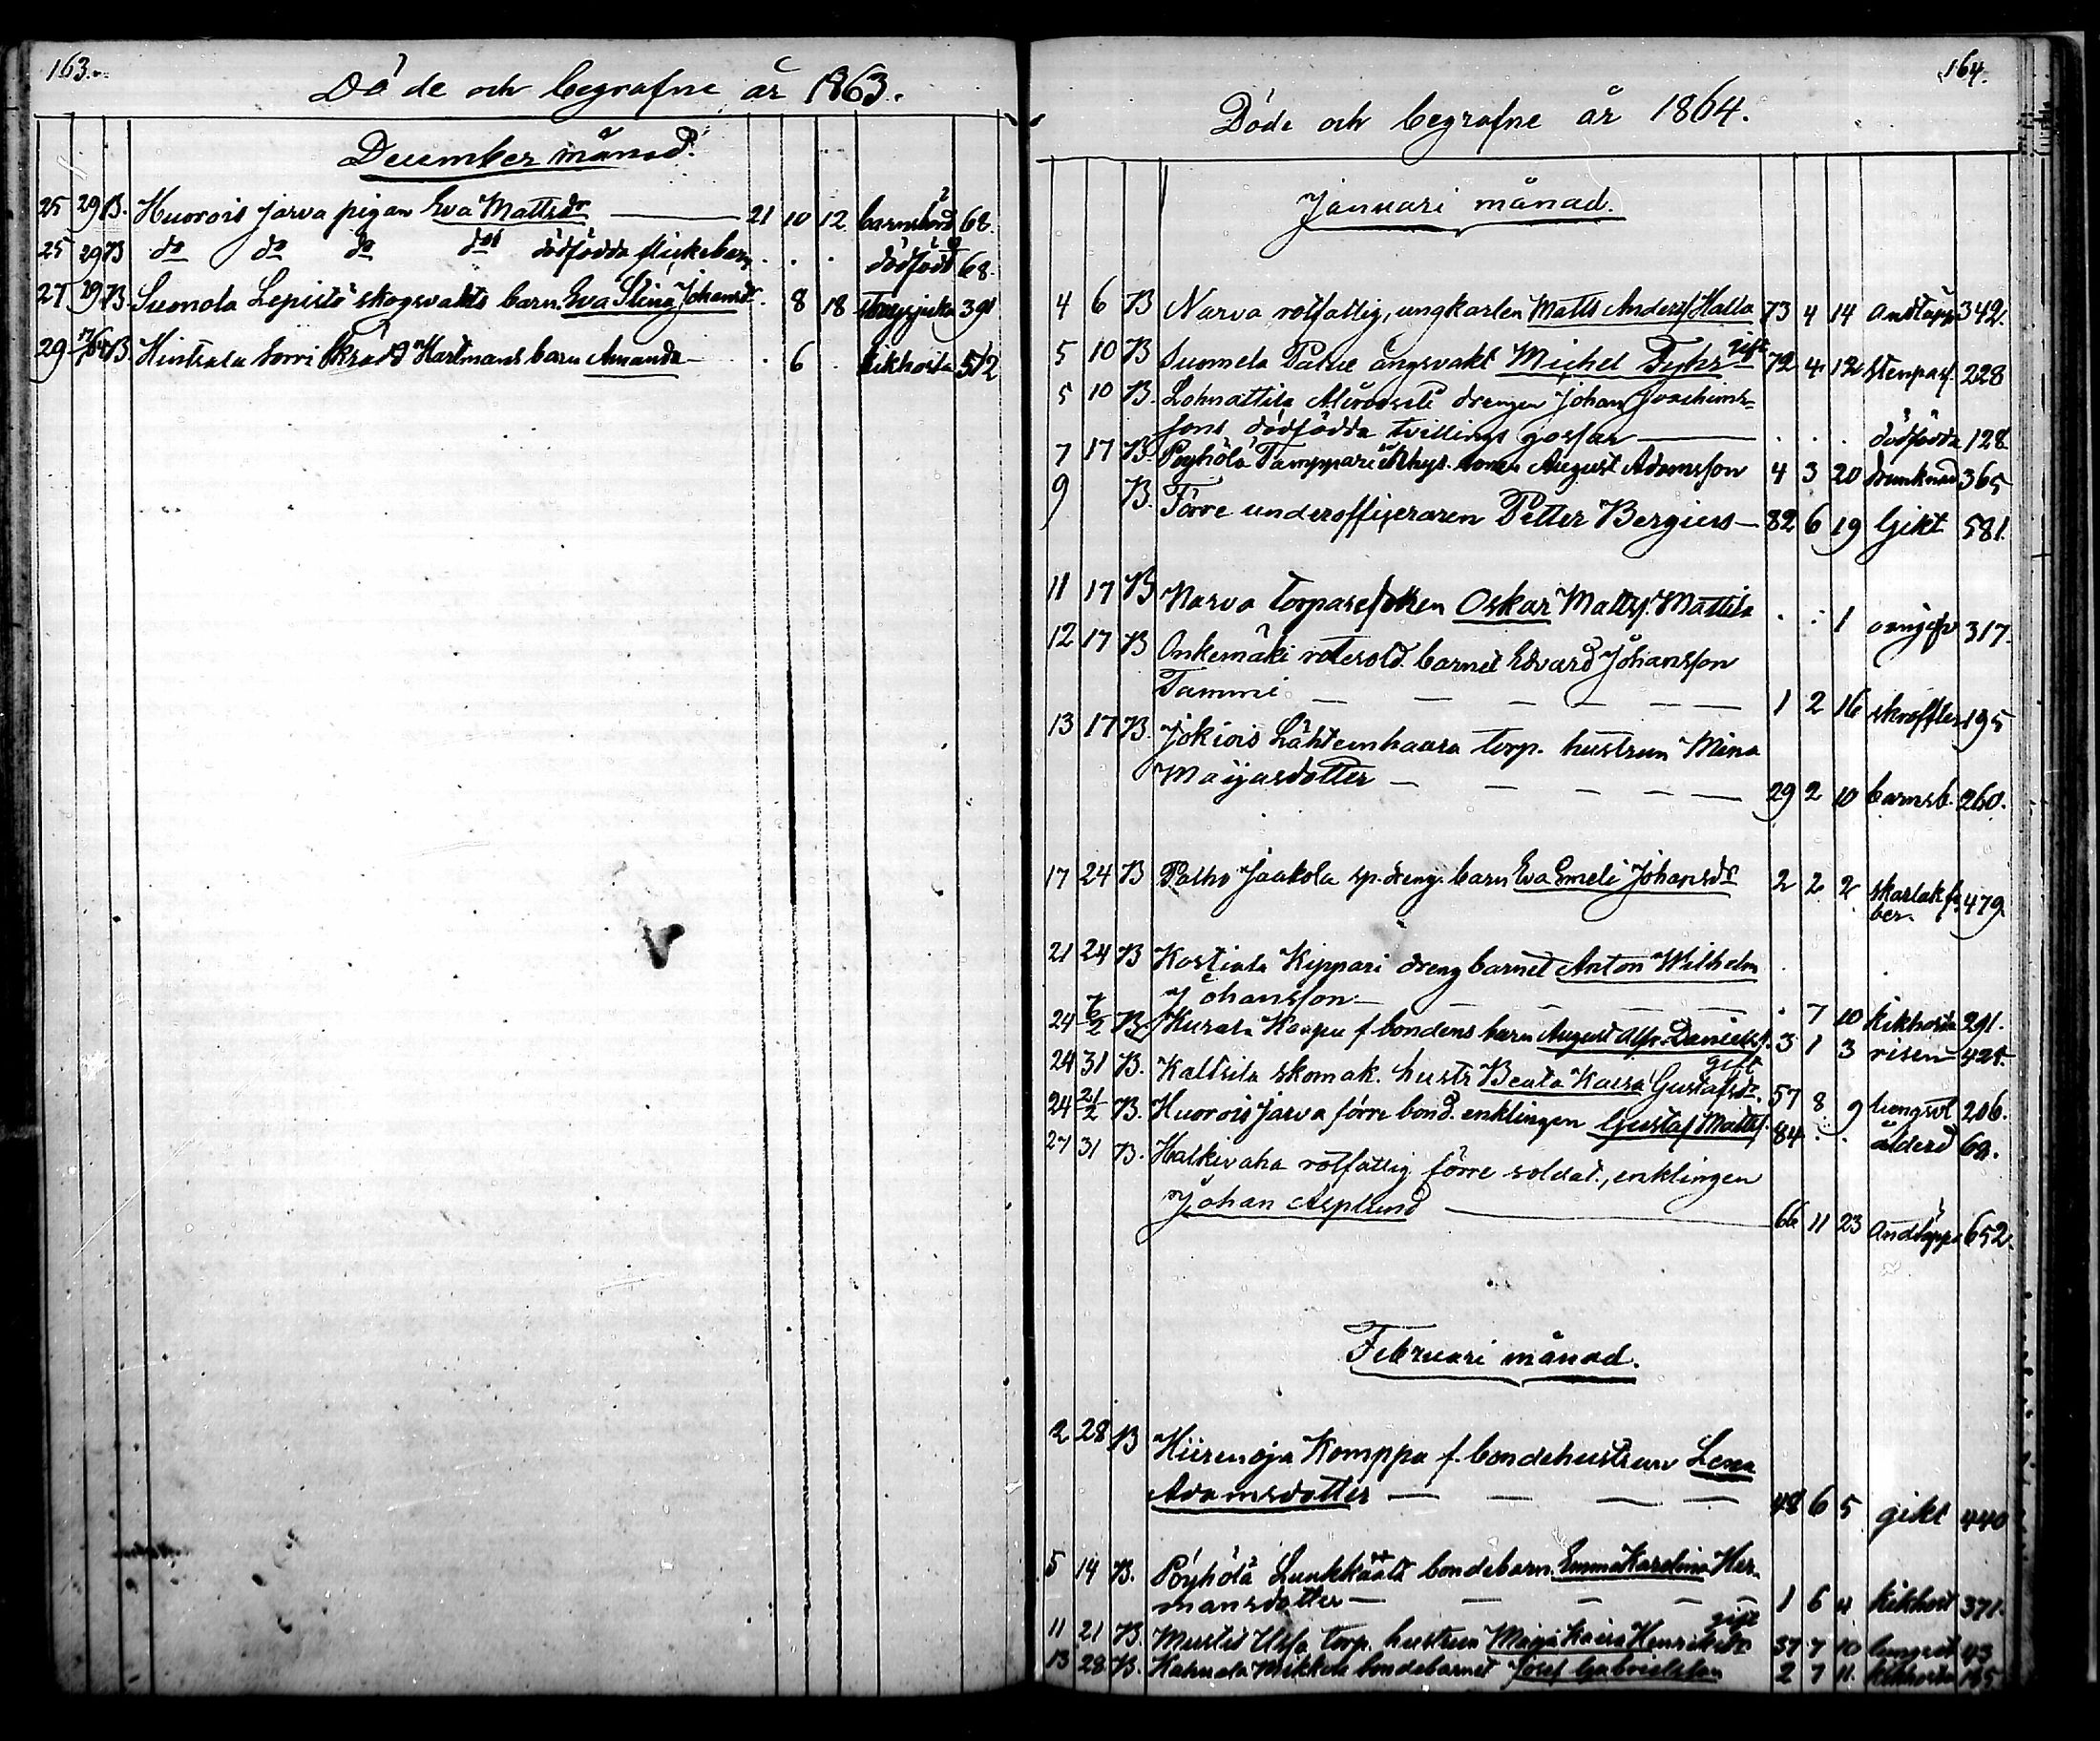 163.
Döde och begrafne år 1863.
December månad.
25 29 B. Huorois Jarva pigan Eva Mattsdr 21 10 12 barnsbörd 68.
25 29 B do do do dödfödda flickebarn . . . dödfödd 68.
27 29 B. Suomola Lepistö skogsvakts barn Eva Stina Johansdr . 8 18 391
29 B. Hintsala Sorri Hartmans barn Amanda . 6 . kikhosta 512
164.
Döde och begrafne år 1864.
Januari månad.
4 6 B Narva rotfattig, ungkarlen Matts Andersf Halla 73 4 14 andtäppa 342.
gift
5 10 B Suomela ängsvakt Michel 72 4 12 stenpass. 228
5 10 B. drengen Johan Joachims-
sons dödfödda tvillings gossar . . . dödfödda 128
7 17 B. Pöyhölä Tamppari August Adamsson 4 3 20 drunknad 365
9 B. Förre underofficeraren Petter Bergius 82 6 19 Gikt 581.
11 17 B Narva torpare Oskar Mattsf. Mattila . . 1 317.
12 17 B Onkemäki rotesold. barnet Edvard Johansson
Tammi 1 2 16 skroffler 195
13 17 B. Jokiois Lähteenhaara torp. hustrun Mina
Maijasdotter 29 2 10 barnsb. 260.
17 24 B Palho Jaakola sp. dreng. barn Eva Emeli Johansdr 2 2 2 skarlak.fe-
ber. 479
21 24 B Kostiala Kippari dreng barnet Anton Wilhelm
Johansson . 7 10 kikhosta 291.
24 7/2 B. Kurala Kaapu f. bondens barn August Alfr. Danielsf. 3 1 3 risen 424.
gift
24 31 B. Kaltsila skomak. hustr Beata Kaisa Gustafsdr. 57 8 9 lungsot 206.
24 21/2 B. Huorois Jarva förre bond. enklingen Gustaf Mattsf. 84 . . ålderd 69.
27 31 B. Halkivaha rotfattig förre soldat., enklingen
Johan Asplund 66 11 23 Andtäppa 652.
Februari månad.
2 28 B Hiirenoja Komppa f. bondehustrun Lena
Adamsdotter 48 6 5 gikt 440
5 14 B. Pöyhölä Luukkaala bondebarn. Emma Karolina Her-
mansdotter 1 6 4 kikhost 371.
gift
11 21 B. Mustis Ussa torp. hustrun Maija Kaisa Henriksdr 37 7 10 lungsot 43
13 28 B. Kahnala Mikkola bondebarnet Josef Gabrielsson 2 7 11. kikhosta 145